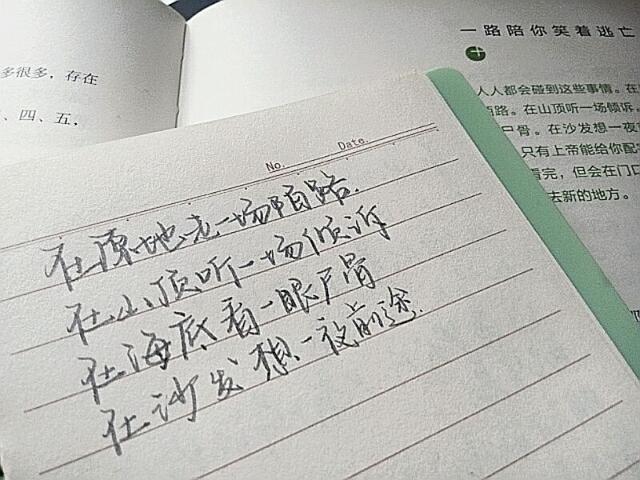 多很多，存在
、四、五，
一路陪你笑着逃亡
人人都会碰到这些事情。在
陌路。在山顶听一场倾诉。
尸骨。在沙发想一夜前
只有上帝能给你配
看完，但会在门口
去新的地方。
No.
Date.
在原地走一场陌路.
在山顶听一场倾诉
在海底看一眼尸骨
在沙发想一夜前途.